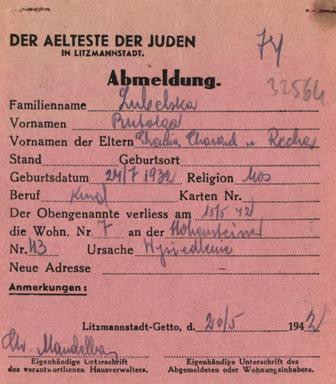 DER AELTESTE DER JUDEN
IN LITZMANNSTADT.
74
32564
Abmeldung.
Familienname Lubelska
Vornamen
Vornamen der Eltern Chaskiel u Rechel
Stand Geburtsort
Geburtsdatum 24/7 1932 Religion Mos
Beruf Kind Karten Nr.
Der Obengenannte verliess am 15/5 42
die Wohn. Nr. 7 an der Hohensteiner
Nr. 43 Ursache Wysiedlenie
Neue Adresse
Anmerkungen:
Litzmannstadt-Getto, d. 20/5 1942
Eigenhändige Unterschrift Eigenhändige Unterschrift des
des verantwortlichen Hausverwalters. Abgemeldeten oder Wohnungsinhabers.